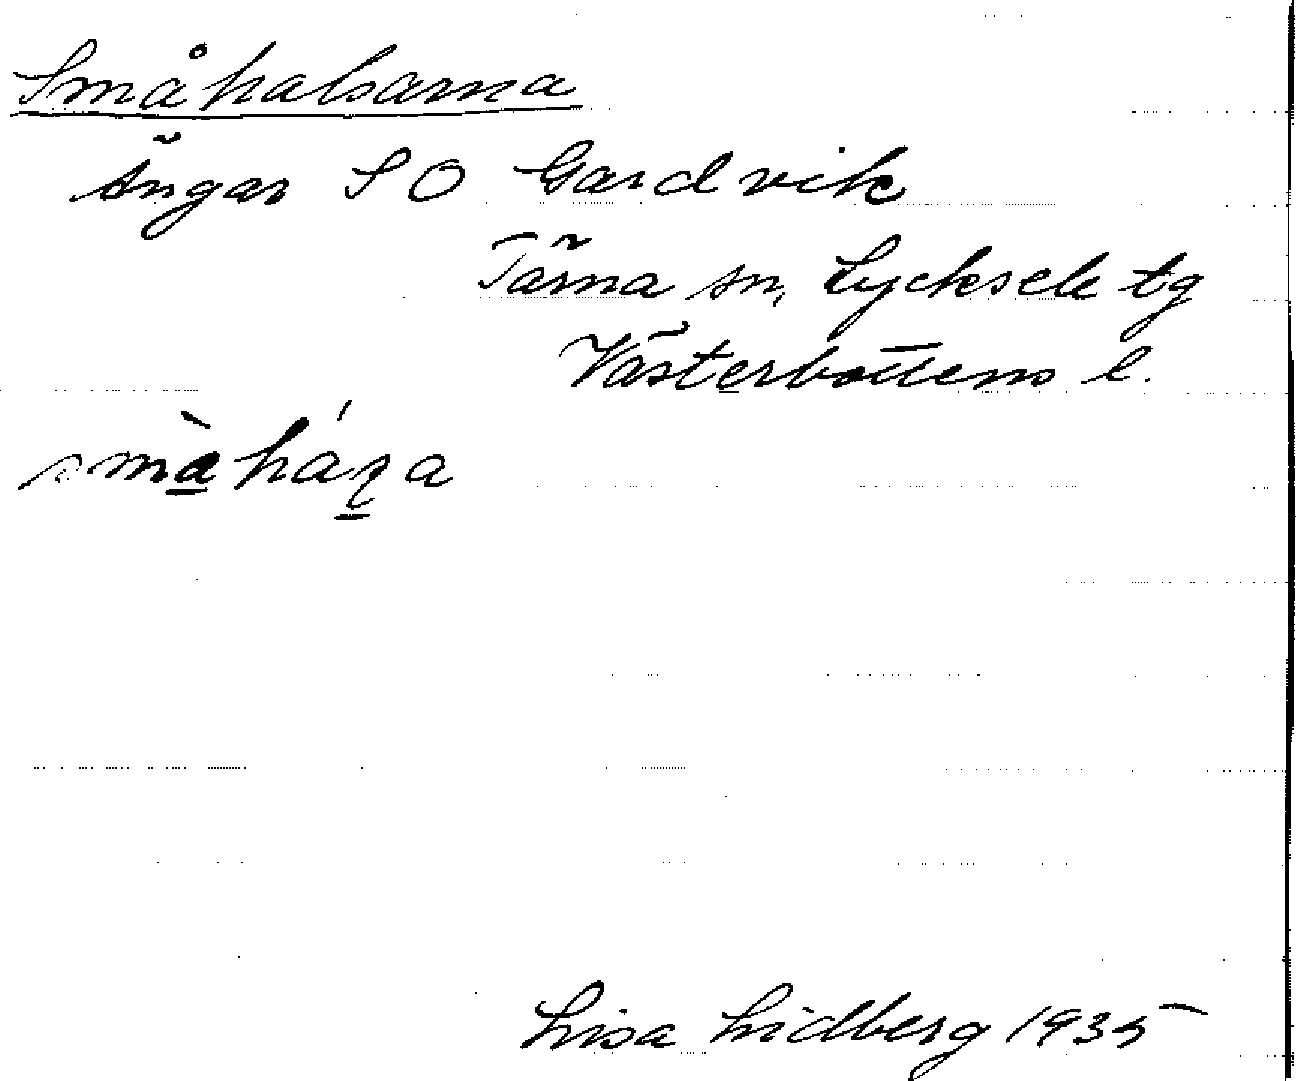 Småhalsarna
Ängar S O Gardvik
Tärna sn, Lycksele tg
Västerbottens l.
Lisa Lidberg 1935